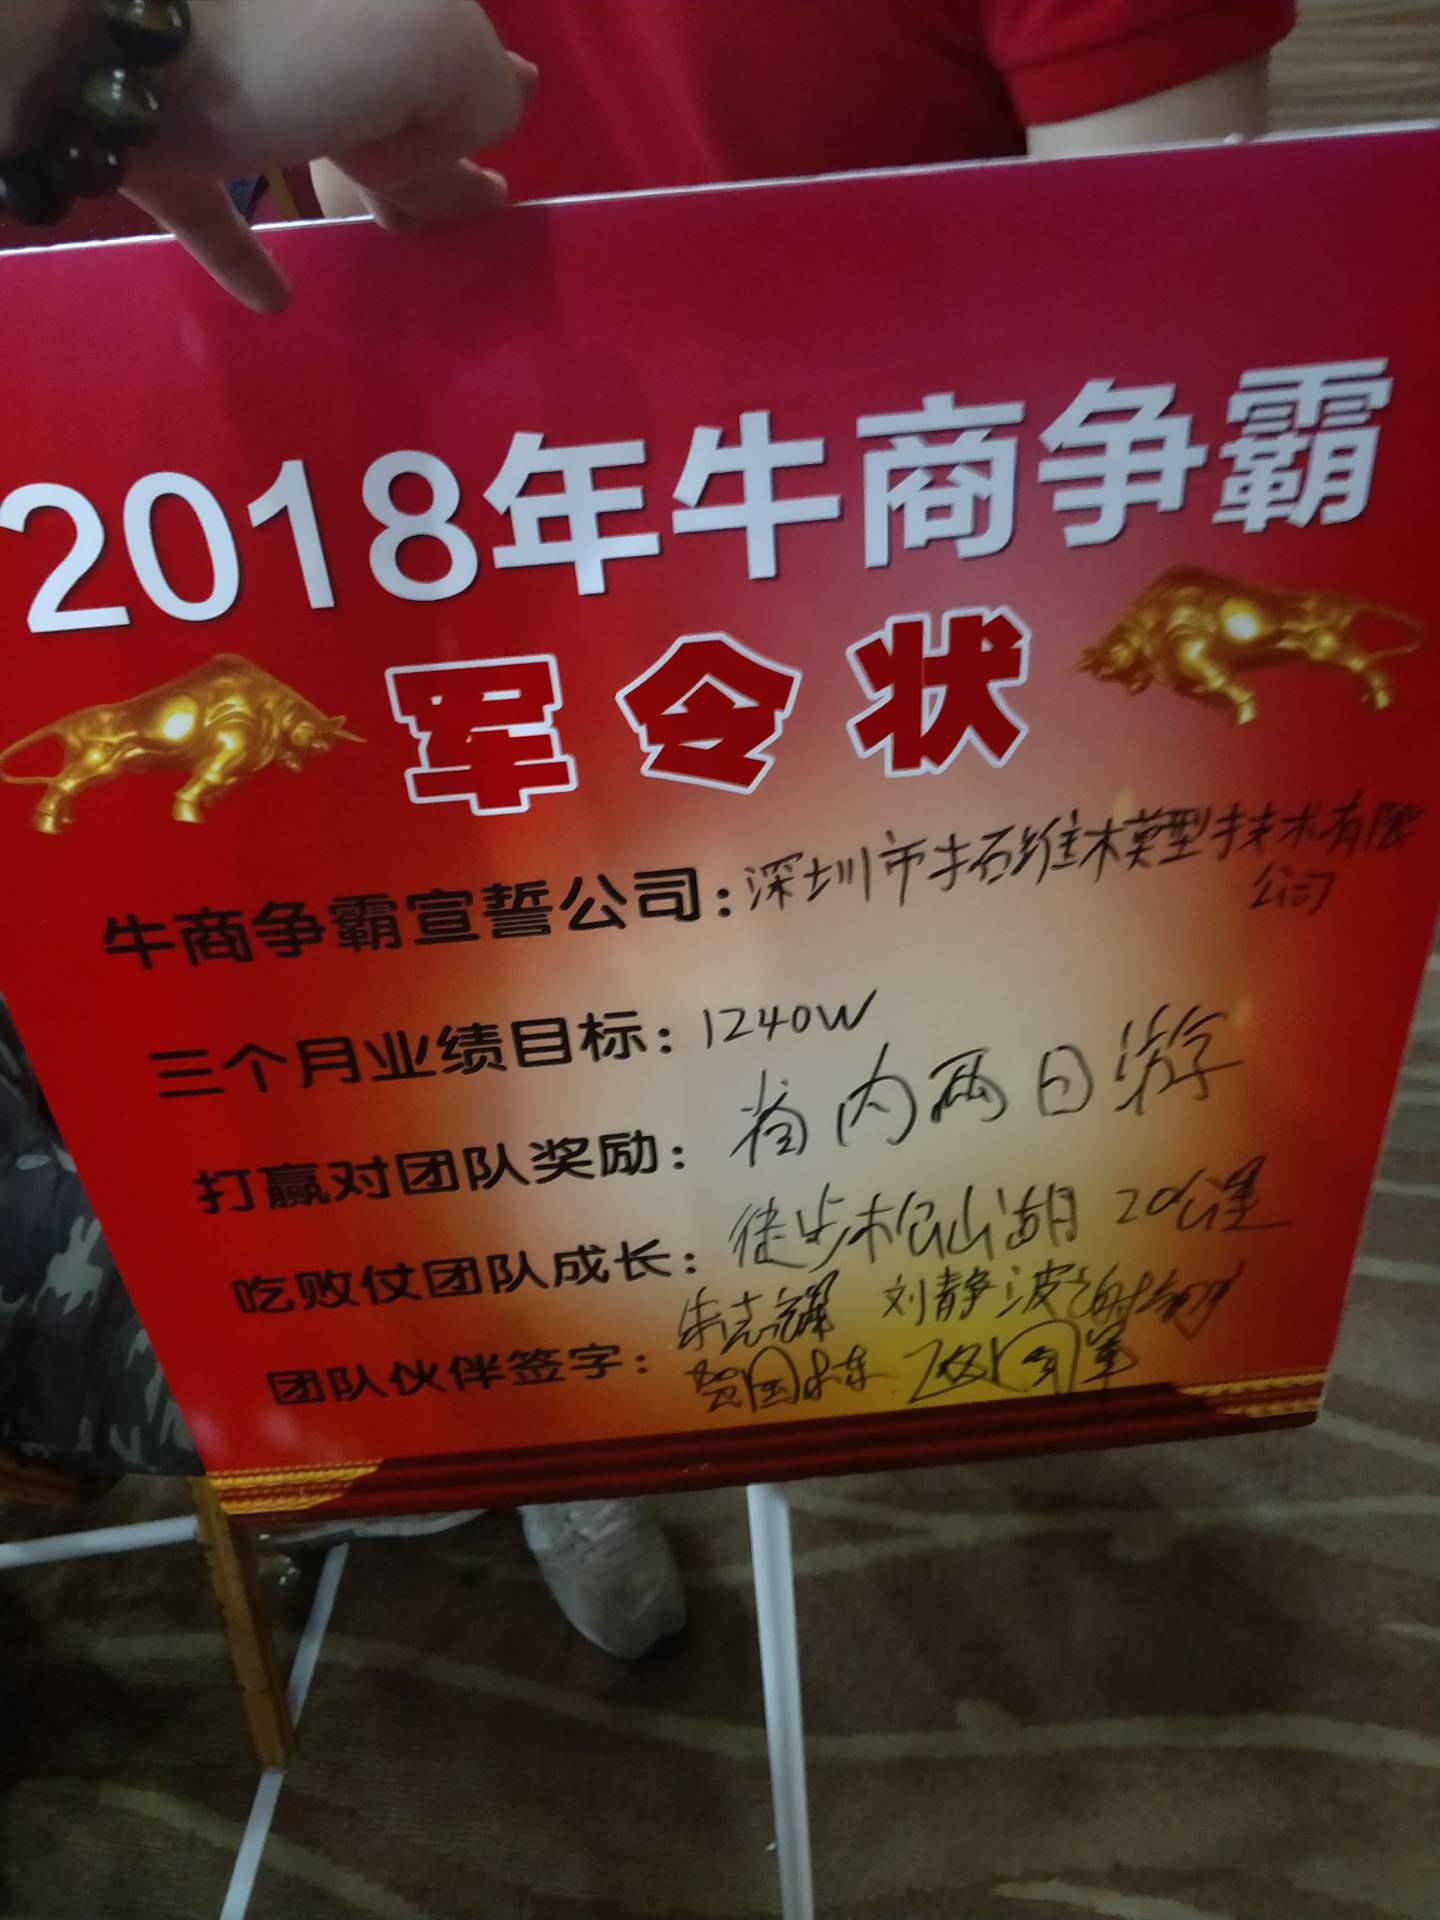 2018年牛商争霸
军令状
牛商争霸宣誓公司:深圳市拓维模型技术有限
公司
三个月业绩目标:1240W
打赢对团队奖励:省内两日游
吃败仗团队成长:徒步松山湖 20公里
朱志辉 刘静波
团队伙伴签字:贺国栋